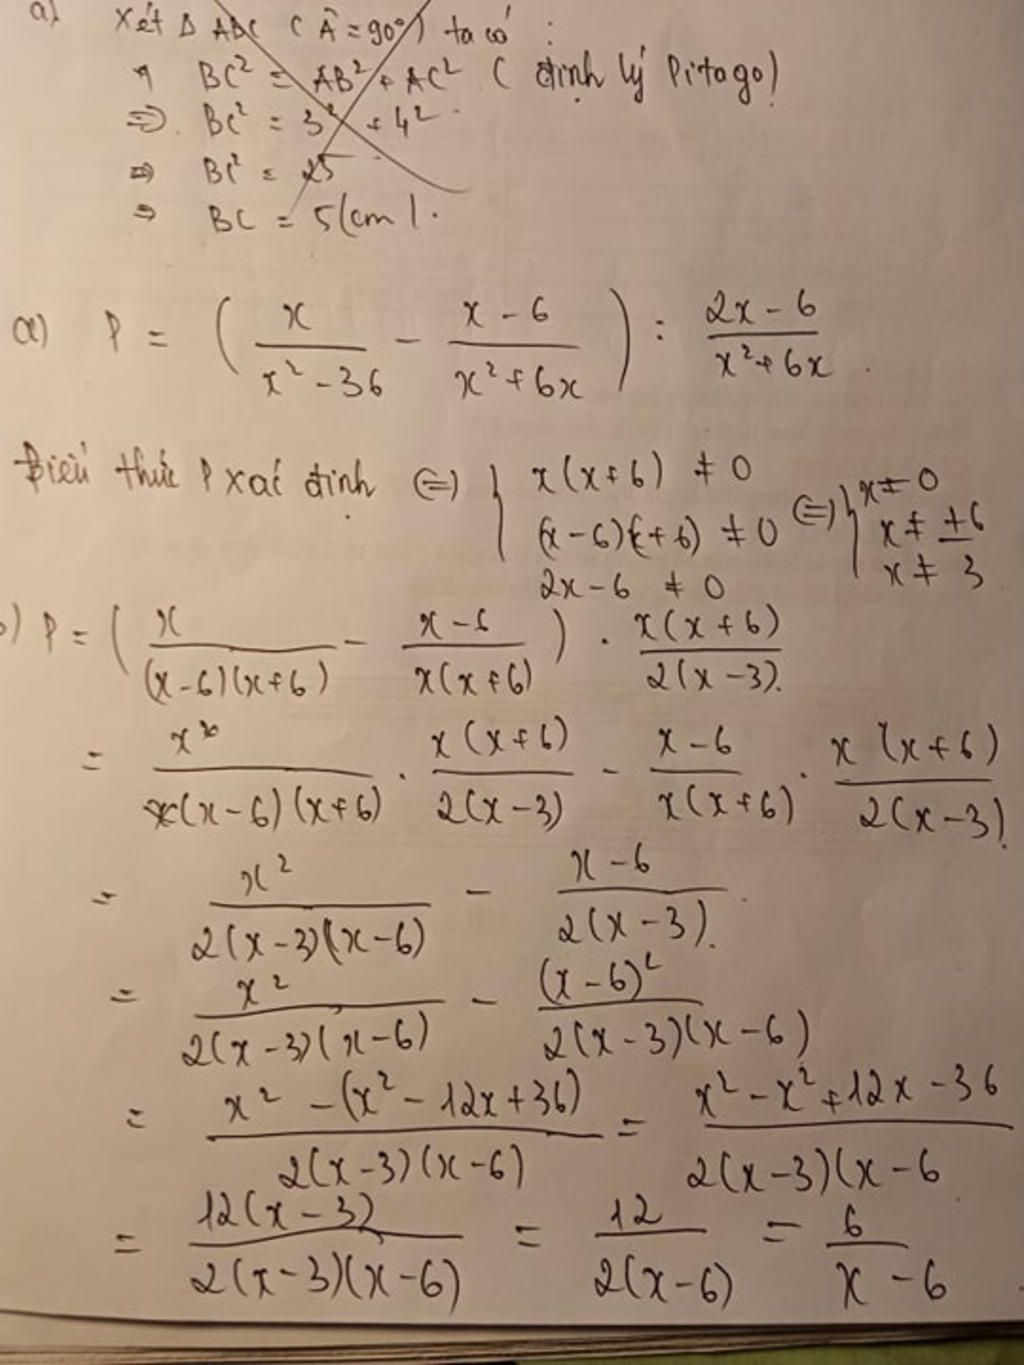 a) Xét Δ ABC ( Â = 90°) ta có :
BC² = AB² + AC² ( định lý Pitago)
=> BC² = 3² + 4²
=> BC² = 25
=> BC = 5(cm).
a) P = ( x / (x² - 36) - (x - 6) / (x² + 6x) ) : (2x - 6) / (x² + 6x) .
Biểu thức P xác định <=> { x(x+6) ≠ 0 <=> { x ≠ 0
(x-6)(x+6) ≠ 0 x ≠ ±6
2x - 6 ≠ 0 x ≠ 3
b) P = ( x / ((x-6)(x+6)) - (x-6) / (x(x+6)) ) . x(x+6) / (2(x-3)).
= x² / (x(x-6)(x+6)) . x(x+6) / (2(x-3)) - (x-6) / (x(x+6)) . x(x+6) / (2(x-3)).
= x² / (2(x-3)(x-6)) - (x-6) / (2(x-3)).
= x² / (2(x-3)(x-6)) - (x-6)² / (2(x-3)(x-6))
= (x² - (x² - 12x + 36)) / (2(x-3)(x-6)) = (x² - x² + 12x - 36) / (2(x-3)(x-6
= 12(x-3) / (2(x-3)(x-6)) = 12 / (2(x-6)) = 6 / (x-6)